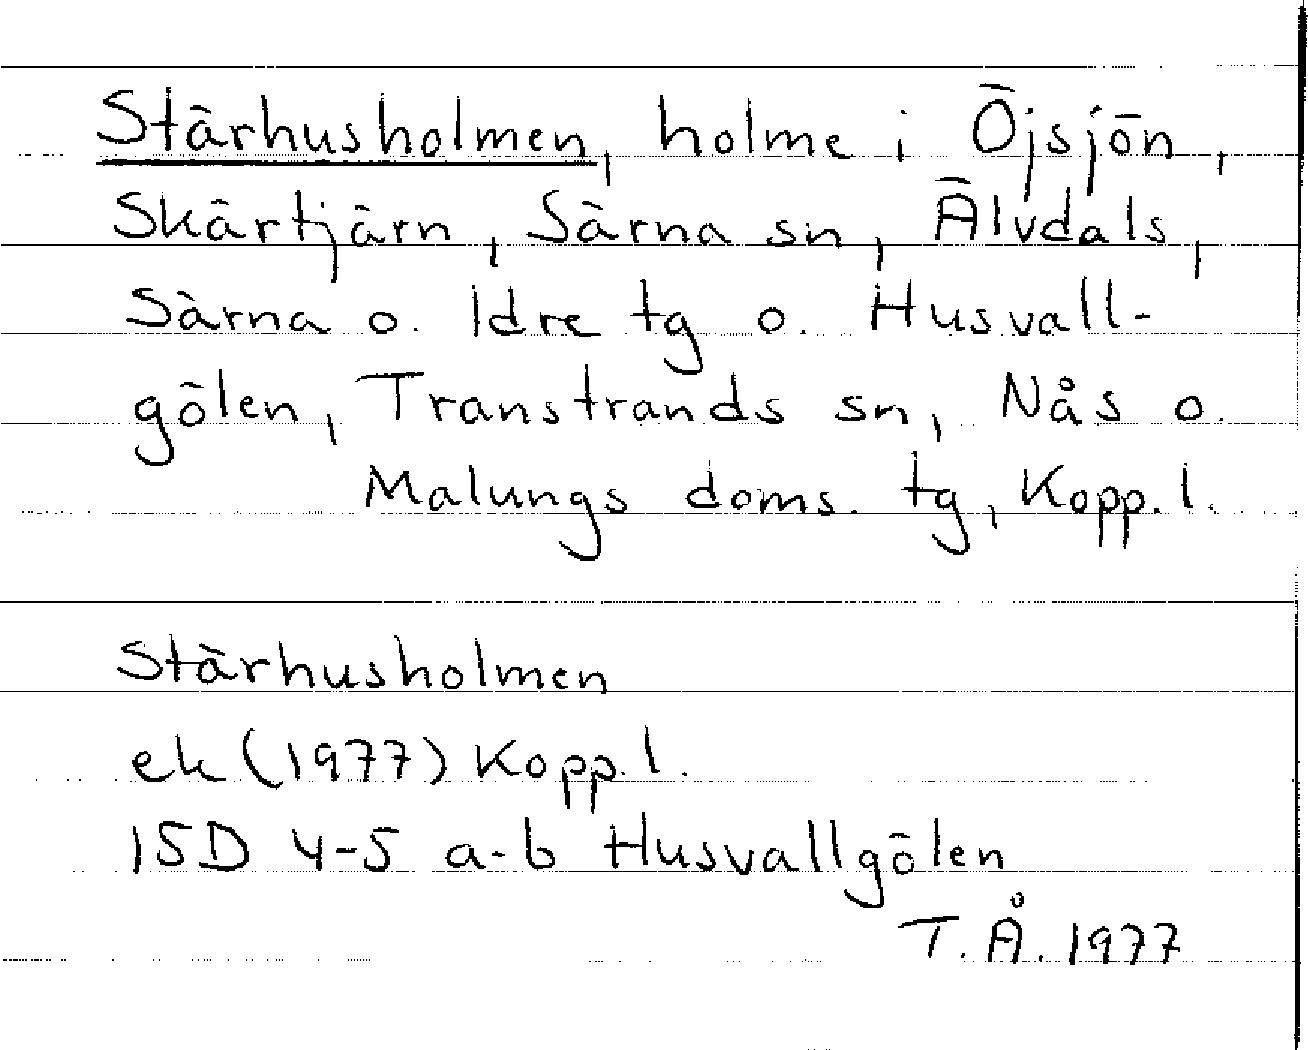 Stärhusholmen, holme i Öjsjön,
Skärtjärn, Särna sn, Älvdals,
Särna o. Idre tg o. Husvall-
gölen, Transtrands sn, Nås o.
Malungs doms. tg, Kopp. l.
Stärhusholmen
ek (1977) Kopp. l.
15D 4-5 a-b Husvallgölen
T. Å. 1977